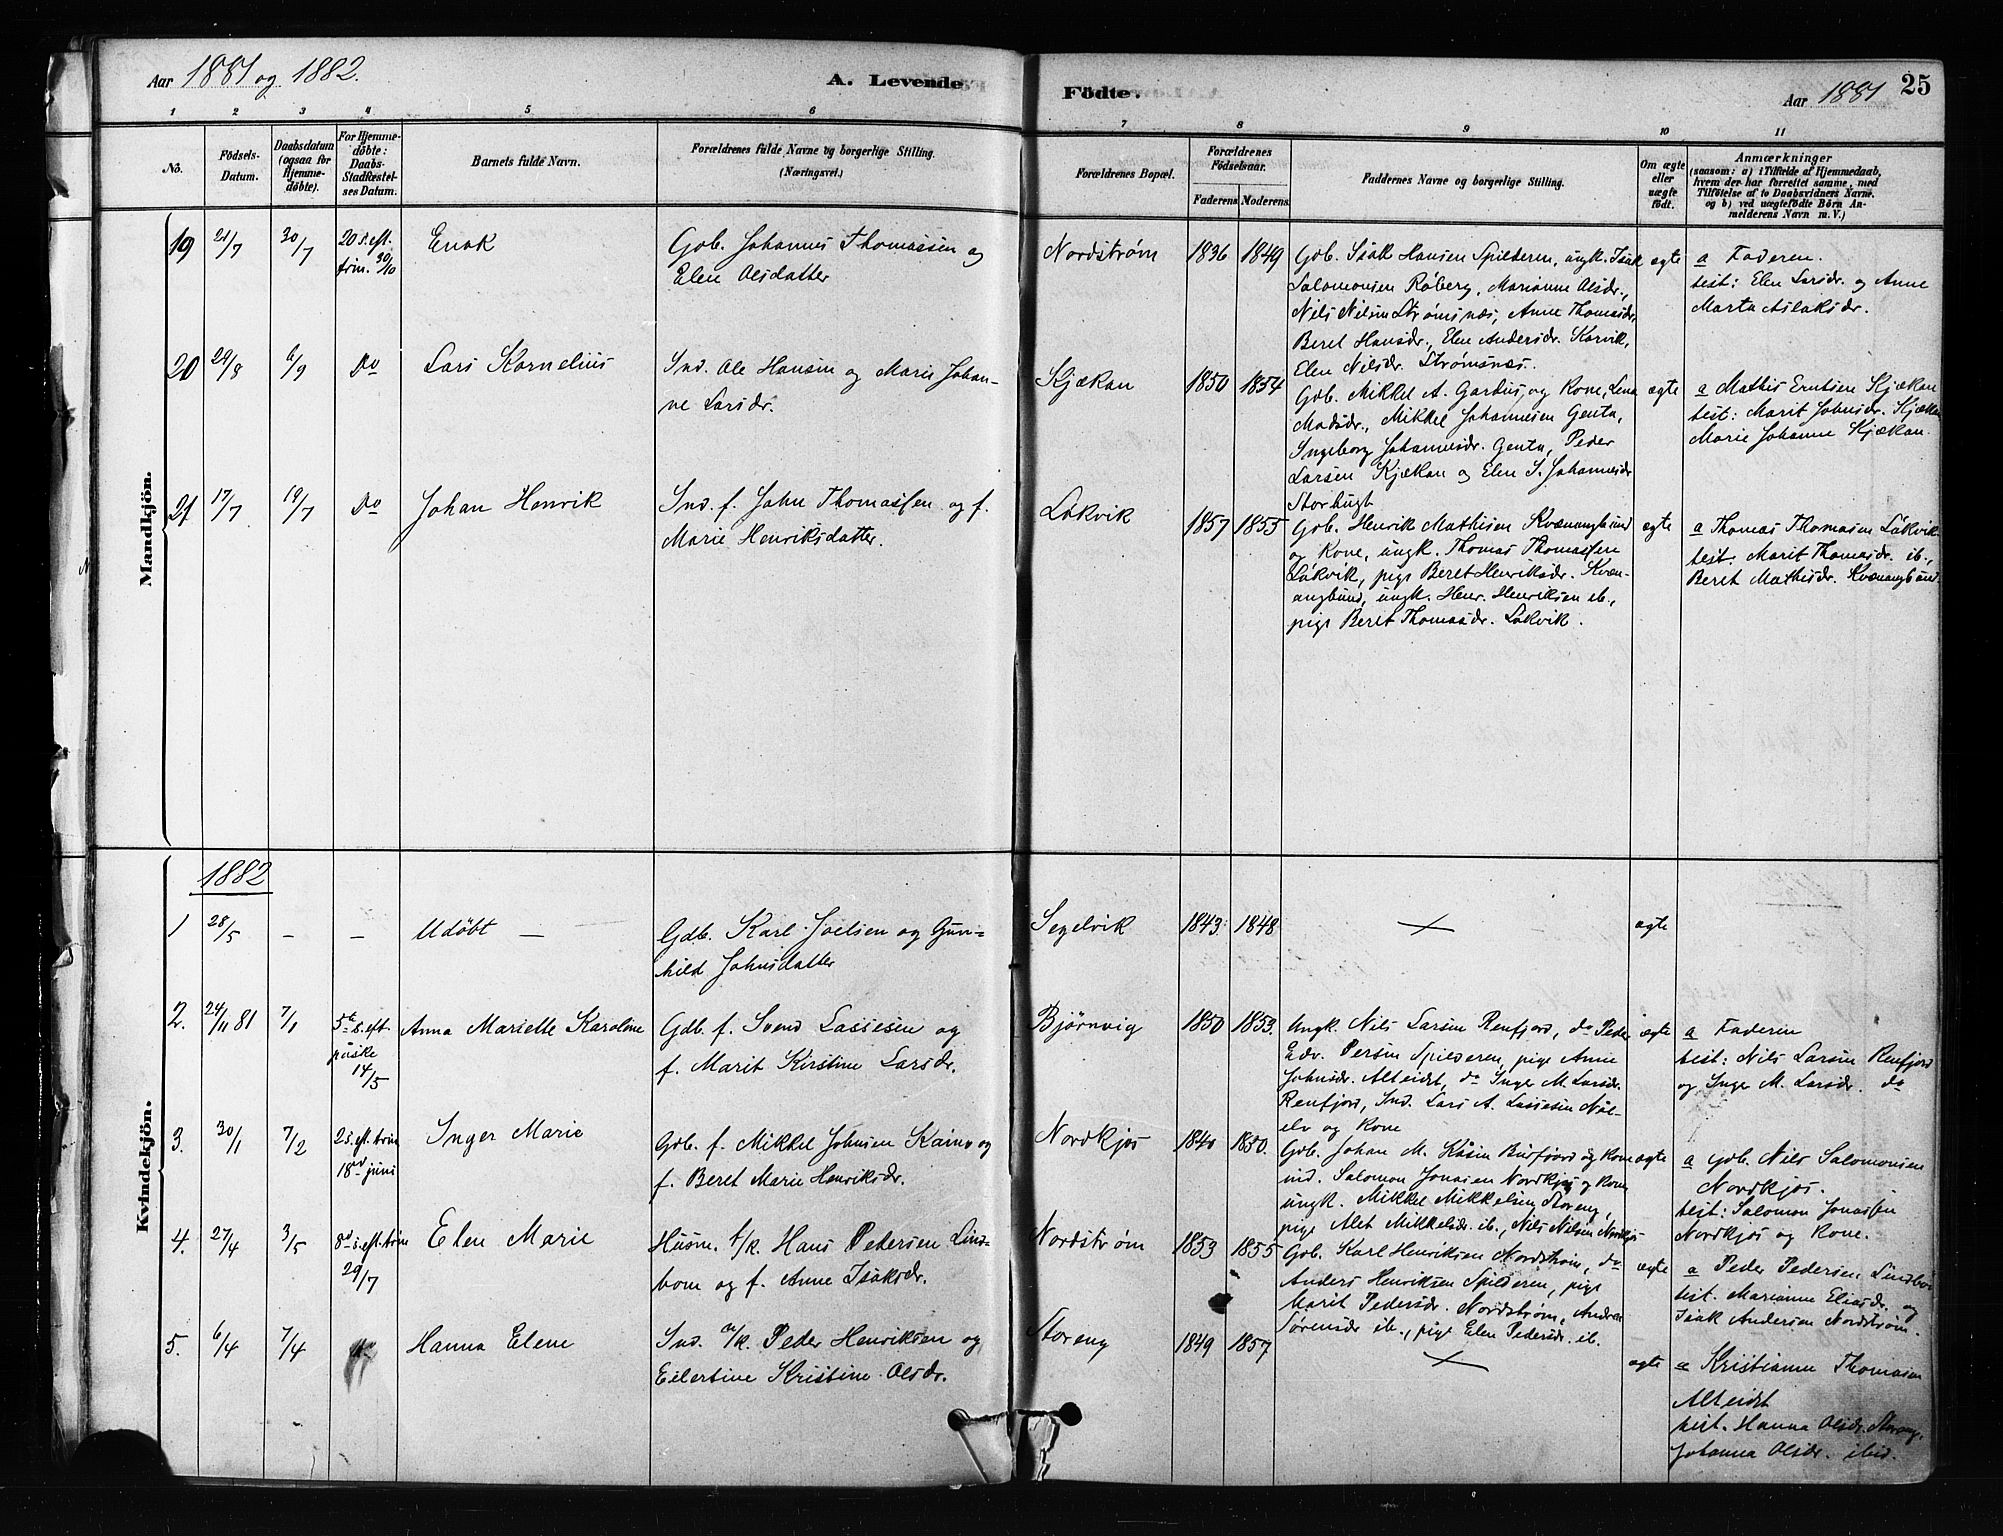 Aar 1881 og 1882.
A. Levende
Födte.
Aar 1881
25
1 2 3 4 5 6 7 8 9 10 11
No.
Födsels-
Datum.
Daabsdatum
(ogsaa for
Hjemme-
döbte).
For Hjemme-
döbte:
Daabs-
Stadfæstel-
ses Datum.
Barnets fulde Navn.
Forældrenes fulde Navne og borgerlige Stilling.
(Næringsvei.)
Forældrenes Bopæl.
Forældrenes
Födselsaar.
Faderens. Moderens.
Faddernes Navne og borgerlige Stilling.
Om ægte
eller
uægte
födt.
Anmærkninger
(saasom: a) i Tilfælde af Hjemmedaab,
hvem der har forrettet samme, med
Tilföielse af to Daabsvidners Navne,
og b) ved uægtefödte Börn An-
melderens Navn m. V.)
Mandkjön.
19 21/7 30/7 20 s. eft.
trin. 30/10
Enok
Gdb. Johannes Thomassen og
Elen Olsdatter
Nordstrøm 1836 1849
Gdb. Isak Hansen Spilderen, ungk. Isak
Salomonsen Røberg, Marianne Olsdr.,
Nils Nilsen Strømsnæs, Anne Thomasdr,
Beret Hansdr., Elen Andersdr. Karvik,
Elen Nilsdr. Strømsnæs.
ægte
a Faderen.
test: Elen Larsdr. og Anne
Marta Aslaksdr.
20 29/8 6/9 Do
Lars Kornelius
Ind. Ole Hansen og Marie Johan-
ne Larsdr.
Kjækan 1850 1854
Gdb. Mikkel A. Gardus, og Kone, Lena
Madsdr., Mikkel Johannesen Genta,
Ingeborg Johannesdr. Genta, Peder
Larsen Kjækan og Elen S. Johannesdr
Storbugt
ægte
a Mathis Erntsen Kjækan
test: Marit Johnsdr. Kjækan
Marie Johanne Kjækan.
21 17/7 19/7 Do
Johan Henrik
Ind. f. John Thomassen og f.
Marie Henriksdatter.
Løkvik 1857 1855
Gdb. Henrik Mathisen Kvænangbund
og Kone, ungk. Thomas Thomassen
Løkvik, pige Beret Henriksdr. Kvæn-
angbund, ungk. Henr. Henriksen ib.,
pige Beret Thomasdr. Løkvik.
ægte
a Thomas Thomasen Løkvik
test. Marit Thomasdr. ib.,
Beret Mathisdr. Kvænangbund.
Kvindekjön.
1882
1 28/5 – –
Udöbt –
Gdb. Karl Joelsen og Gun-
hild Johnsdatter
Segelvik 1843 1848
ægte
2. 24/11 81 7/1 5te s. eft.
påske
14/5
Anna Mariette Karoline
Gdb. f. Svend Lassesen og
f. Marit Kirstine Larsdr.
Bjørnvig 1850 1853.
Ungk. Nils Larsen Renfjord, do Peder
Edv. Persen Spilderen, pige Anne
Johnsdr. Alteidet, do Inger M. Larsdr.
Renfjord, Ind. Lars A. Lassesen
elv og Kone
ægte
a Faderen
test: Nils Larsen Renfjord
og Inger M. Larsdr. do
3. 30/1 7/2 2 s. eft. trin
18de juni
Inger Marie
Gdb. f. Mikkel Johnsen Kaino og
f. Beret Marie Henriksdr.
Nordkjos 1840 1850.
Gdb. Johan M. Kåsen Burfjord og Kone
ind. Salomon Jonasen Nordkjos og Kone
ungk. Mikkel Mikkelsen Storeng,
pige Alet Mikkelsdr. ib., Nils Nilsen Nordkjos
ægte
a gdb. Nils Salomonsen
Nordkjos.
test: Salomon Jonassen
Nordkjos og Kone.
4. 27/4 3/5 8de s. eft. trin
29/7
Elen Marie
Husm. t/k. Hans Pedersen Lind-
bom og f. Anne Isaksdr.
Nordstrøm 1853 1855
Gdb. Karl Henriksen Nordstrøm, do
Anders Henriksen Spilderen, pige
Marit Pedersdr. Nordstrøm, Andrea
Sørensdr ib., pige Elen Pedersdr. ib.
ægte
a Peder Pedersen Lindbom
test. Marianne Eliasdr. og
Isak Andersen Nordstrøm.
5. 6/4 7/4
Hanna Elene
Ind. n/k. Peder Henriksen og
Eilertine Kristine Olsdr.
Storeng 1849 1857
ægte
a Kristianne Thomasen
Alteidet
test. Hanna Olsdr. Storeng,
Johanna Olsdr. ibid.